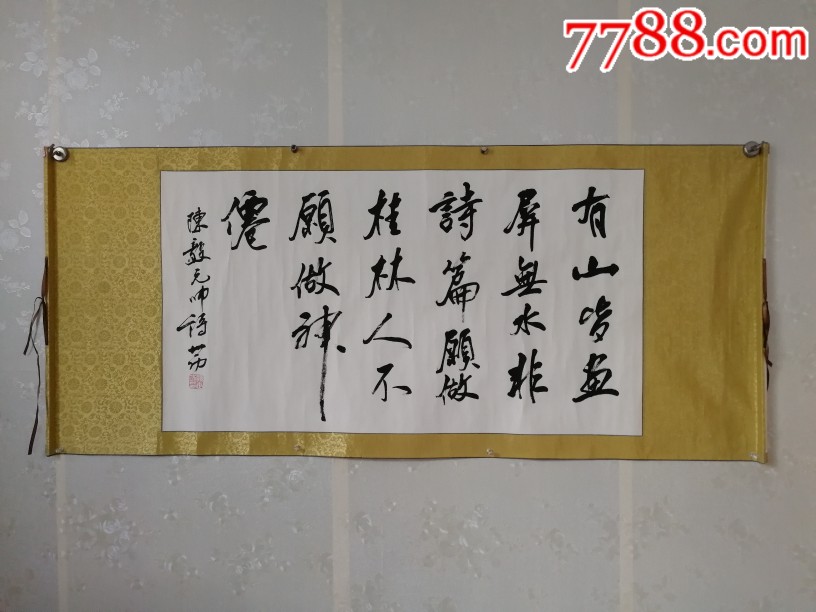 7788.com
有山皆畫
屏無水非
詩篇願做
桂林人不
願做神
僊
陳毅元帅詩